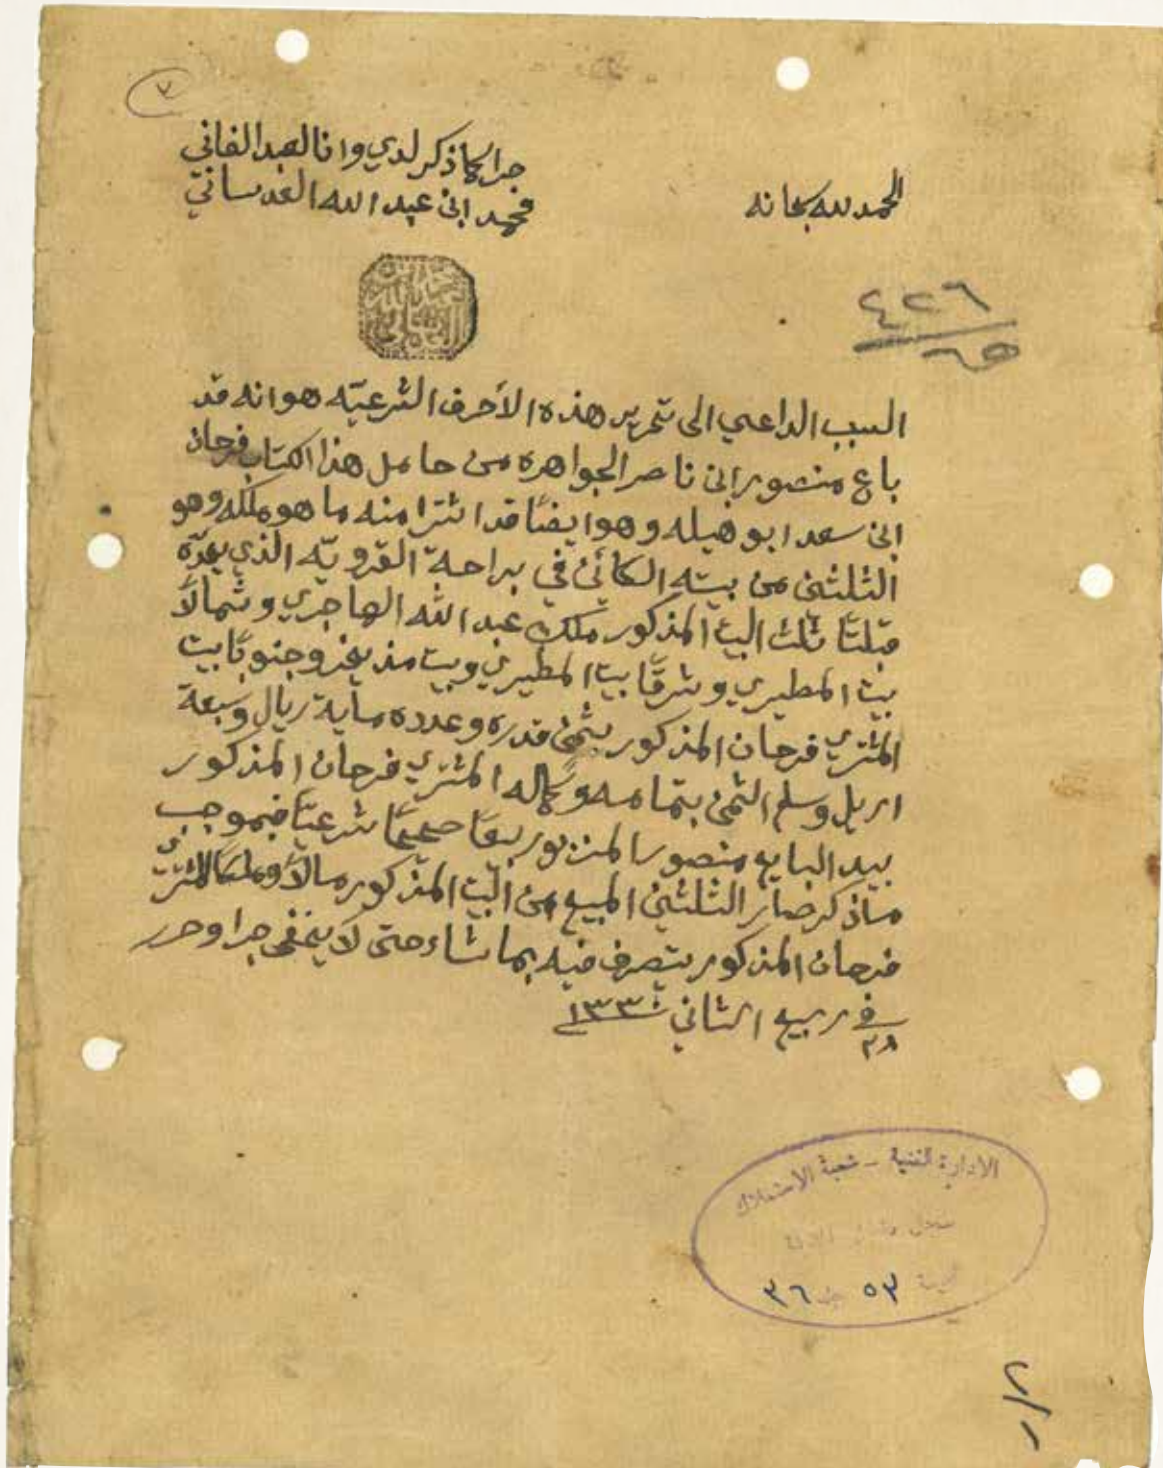 ٧
جرا كما ذكر لدي وانا العبد الفاني
محمد ابن عبد الله العدساني
الحمد لله سبحانه
٤٢٢٦
٦٥
السبب الداعي الى تحرير هذه الأحرف الشرعيّه هو انه قد
باع منصور ابن ناصر الجواهره من حامل هذا الكتاب فرحان
ابن سعد ابو هيله وهو ايضًا قد اشترا منه ما هو ملكه وهو
الثلثين من بيته الكائن في براحة القرويّه الذي يحدّه
قبلتًا ثلث البيت المذكور ملك عبد الله الهاجري وشمالاً
بيت المطيري وشرقًا بيت المطيري وبيت منيخر وجنوبًا بيت
المشتري فرحان المذكور بثمن قدره وعدده ماية ريال وسبعة
اريل وسلم الثمن بتمامه وكماله المشتري فرحان المذكور
بيد البايع منصور المزبور بيعًا صحيحًا شرعيًا فبموجب
ماذكر صار الثلثين المبيع من البيت المذكور مالاً وملكًا للمشتري
فرحان المذكور يتصرف فيه بما شاء حتى لا يخفى جرا وحرر
في ٢٨ ربيع الثاني ١٣٣٠
الادارة الفنية - شعبة الاستملاك
٥٣ ٣٦
٢/١